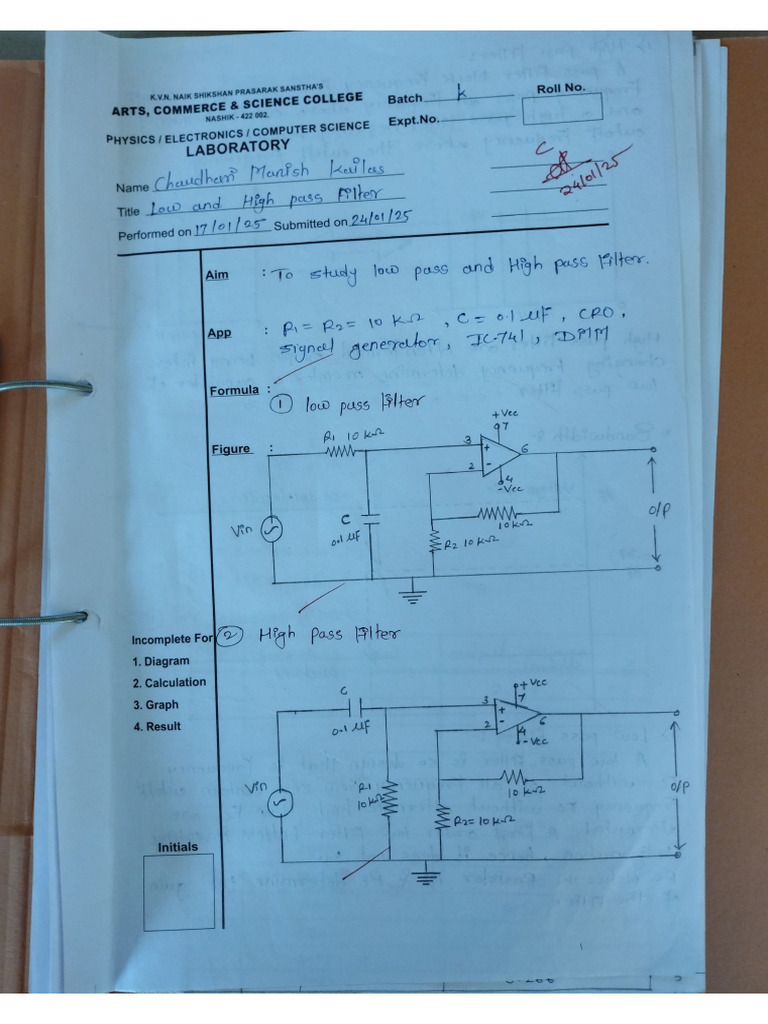 K.V.N. NAIK SHIKSHAN PRASARAK SANSTHA'S
ARTS, COMMERCE & SCIENCE COLLEGE
NASHIK - 422 002.
PHYSICS / ELECTRONICS / COMPUTER SCIENCE
LABORATORY
Batch K
Roll No.
Expt.No.
Name Chaudhari Manish Kailas
Title Low and High pass Filter
Performed on 17/01/25 Submitted on 24/01/25
C
24/01/25
Aim : To study low pass and High pass Filter.
App : R1 = R2 = 10 KΩ , C = 0.1 μF , CRO ,
signal generator, IC-741, DMM
Formula :
① low pass Filter
Figure :
R1 10 KΩ
+Vcc
7
3
+
6
2
-
4
-Vcc
Vin
C
0.1 μF
10 KΩ
R2 10 KΩ
O/P
Incomplete For
1. Diagram
2. Calculation
3. Graph
4. Result
② High Pass Filter
C
0.1 μF
+Vcc
7
3
+
6
2
-
4
-Vcc
Vin
R1
10 KΩ
10 KΩ
R2= 10 KΩ
O/P
Initials